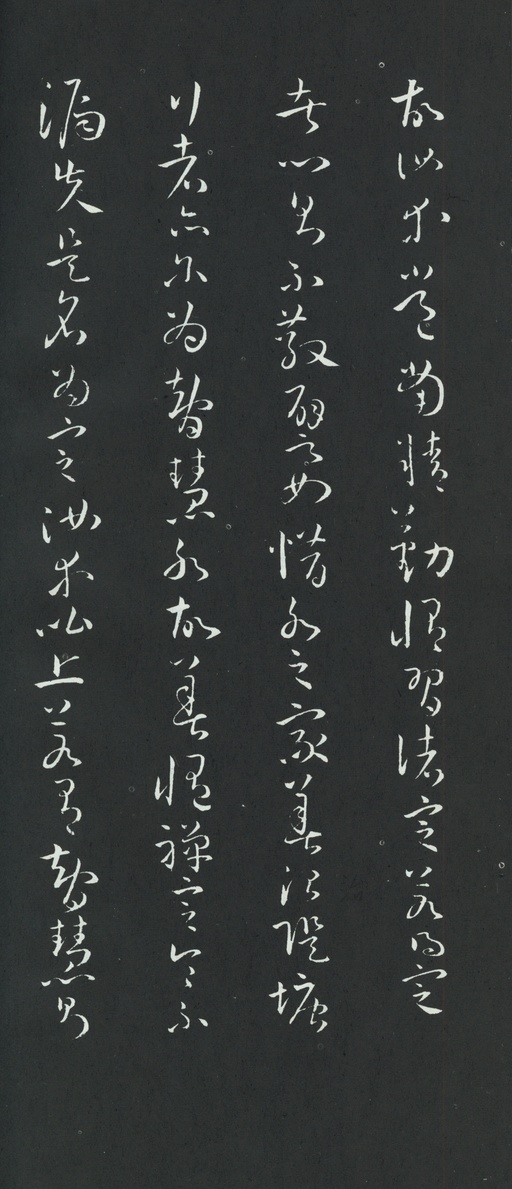 故汝等常當精勤修習諸定若得定
者心則不散譬如惜水之家善治隄塘
行者亦尔為智慧水故善修禪定令不
漏失是名為定汝等比丘若有智慧則